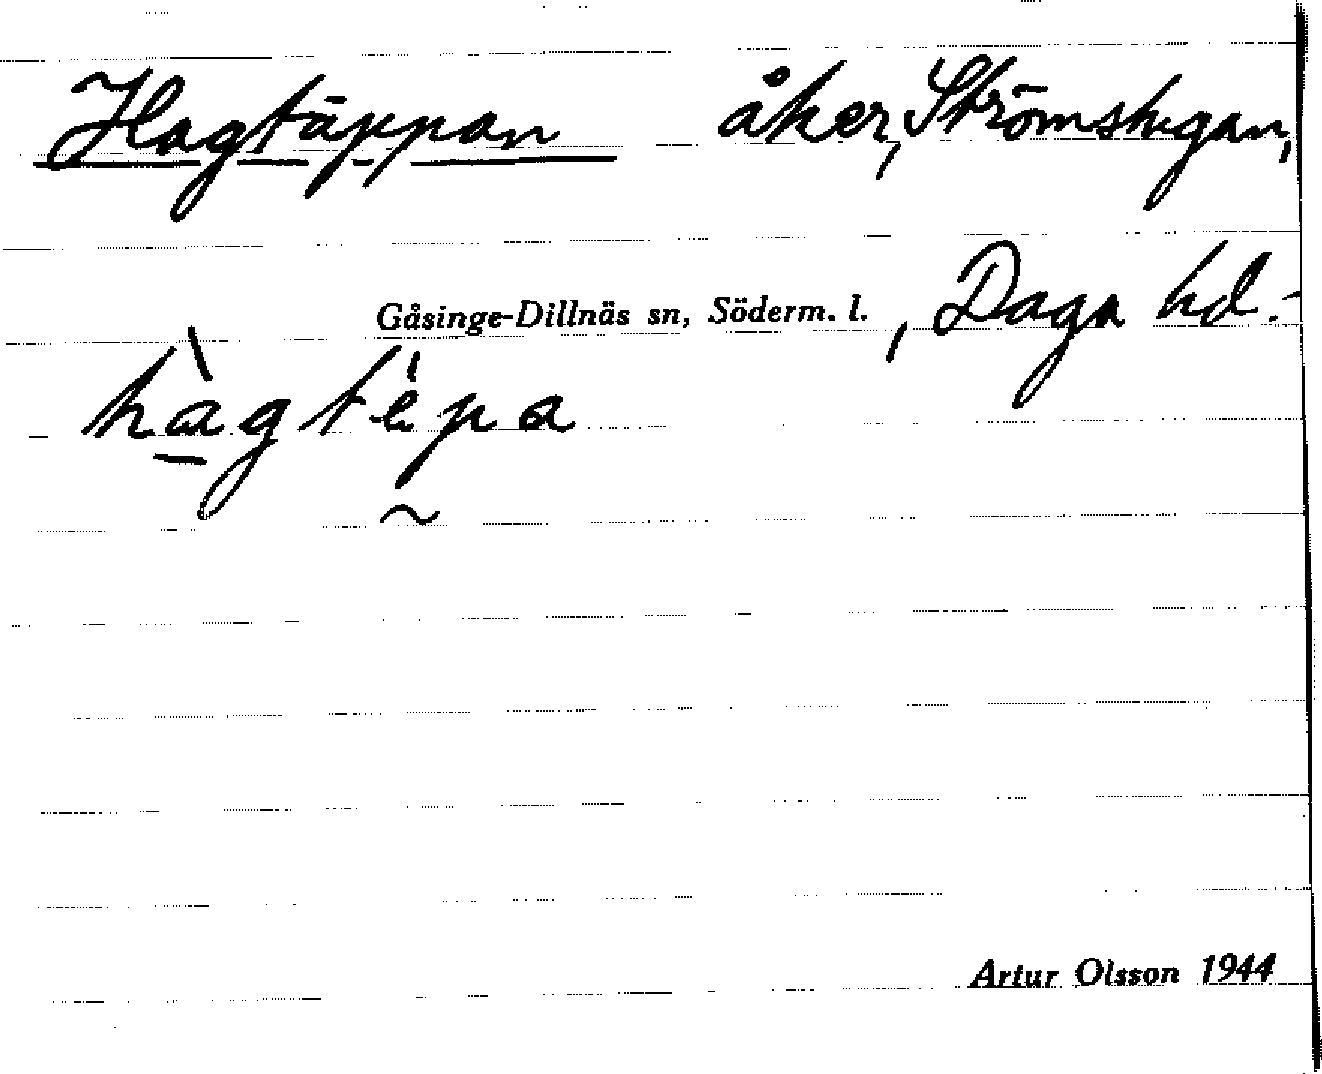 Hagtäppan åker, Strömstugan,
Gåsinge-Dillnäs sn, Söderm. l., Daga hd.
hàgtépa
Artur Olsson 1944